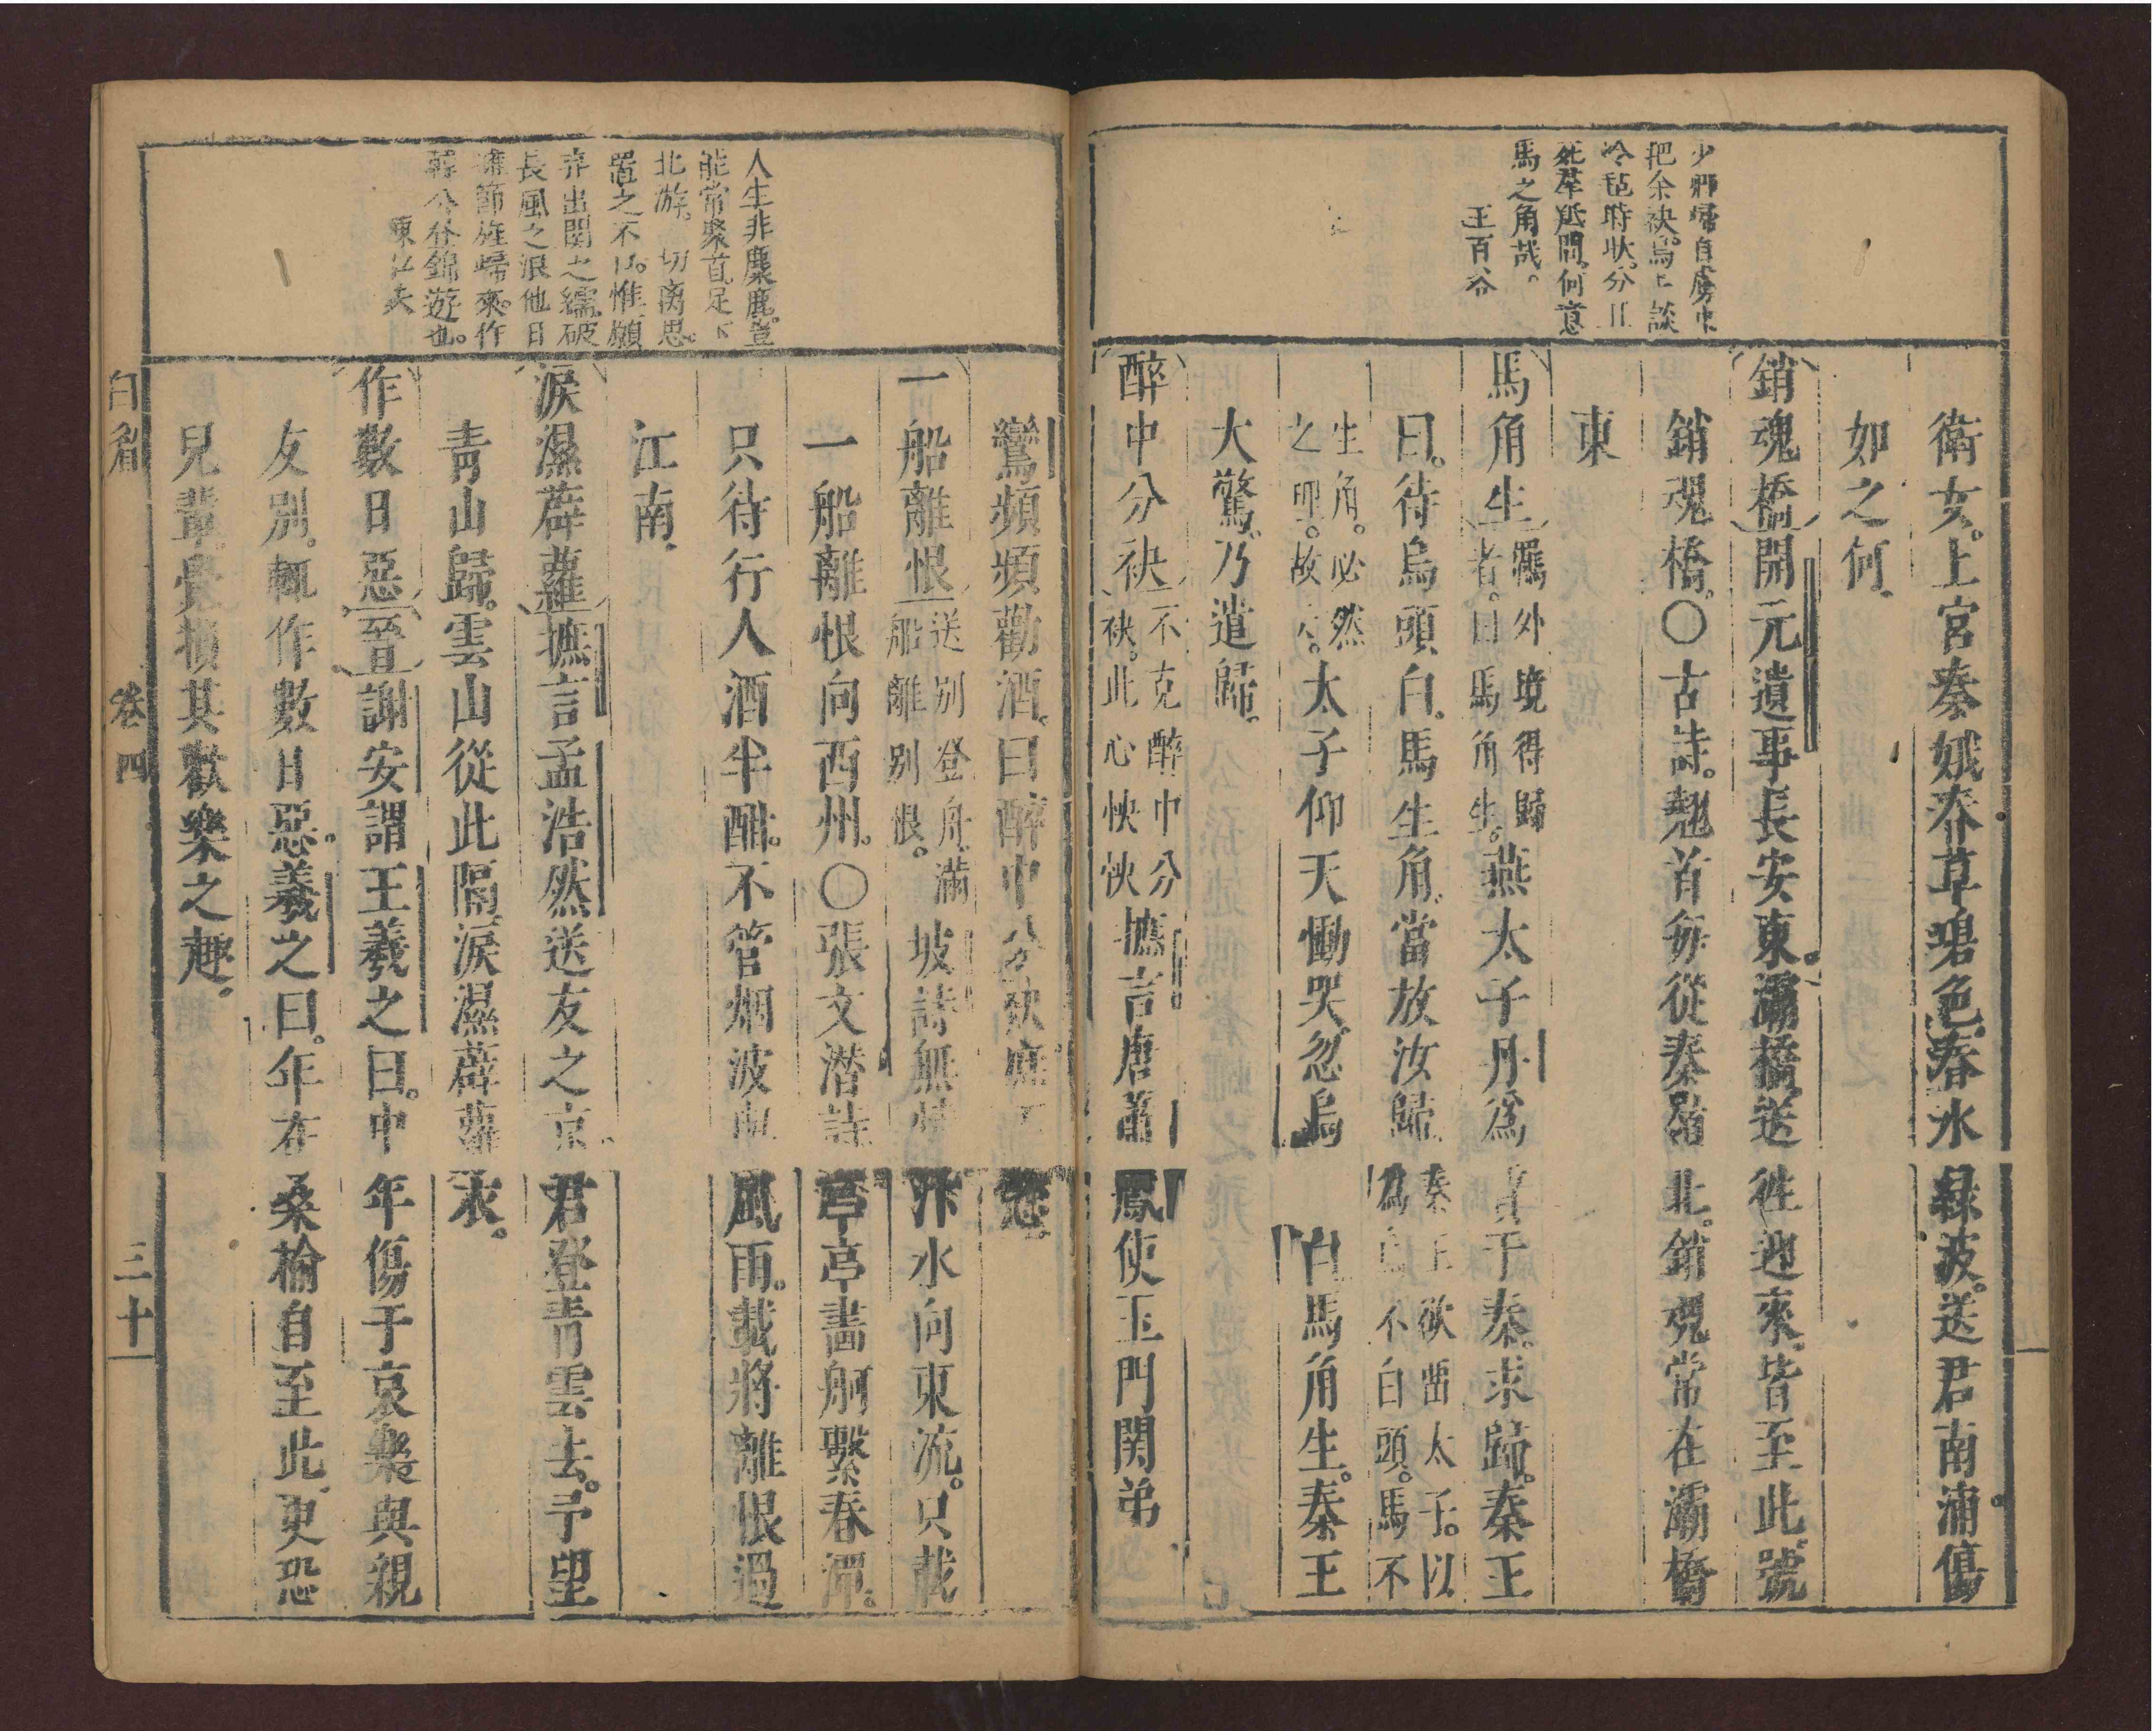 少卿歸自虜中
把余袂烏上談
冷毡時狀分
死羣羝間何意
馬之角哉。
王百谷
衛女。上宮秦娥春草碧色。春水綠波。送君南浦。傷
如之何。
銷魂橋開元遺事長安東。灞橋送往迎來。皆至此。號
銷魂橋。○古詩。翹首每從秦嶺北。銷魂常在灞橋
東
馬角生羈外境得歸者。曰馬角生。燕太子丹為質于秦。求歸。秦王
曰。待烏頭白。馬生角。當放汝歸。秦王欲留太子。以為烏不白頭。馬不
生角。必然之理。故云。太子仰天慟哭。忽烏白馬角生。秦王
大驚。乃遣歸。
醉中分袂不克醉中分袂。此心怏怏摭言唐蕭鳳使玉門関弟
鸞頻頻勸酒。曰醉中分袂庶不
一船離恨送別登舟。滿船離別恨。坡詩無情汴水向東流。只載
一船離恨向西州。○張文潛詩亭亭畵舸繫春潭。
只待行人酒半酣。不管烟波與風雨。載將離恨過
江南。
淚濕薜蘿摭言孟浩然送友之京君登青雲去。予望
青山歸。雲山從此隔。淚濕薜蘿衣。
作數日惡晉謝安謂王羲之曰。中年傷于哀樂與親
友別。輒作數日惡。羲之曰。年在桑榆自至此。更恐
兒輩覺損其歡樂之趣。
人生非麋鹿。豈
能常聚首。足下
北游。切离思。
置之不 惟願
弃出関之繻。破
長風之浪他日
擁節旄歸來。作
韓公
登錦遊也。
卷四
三十